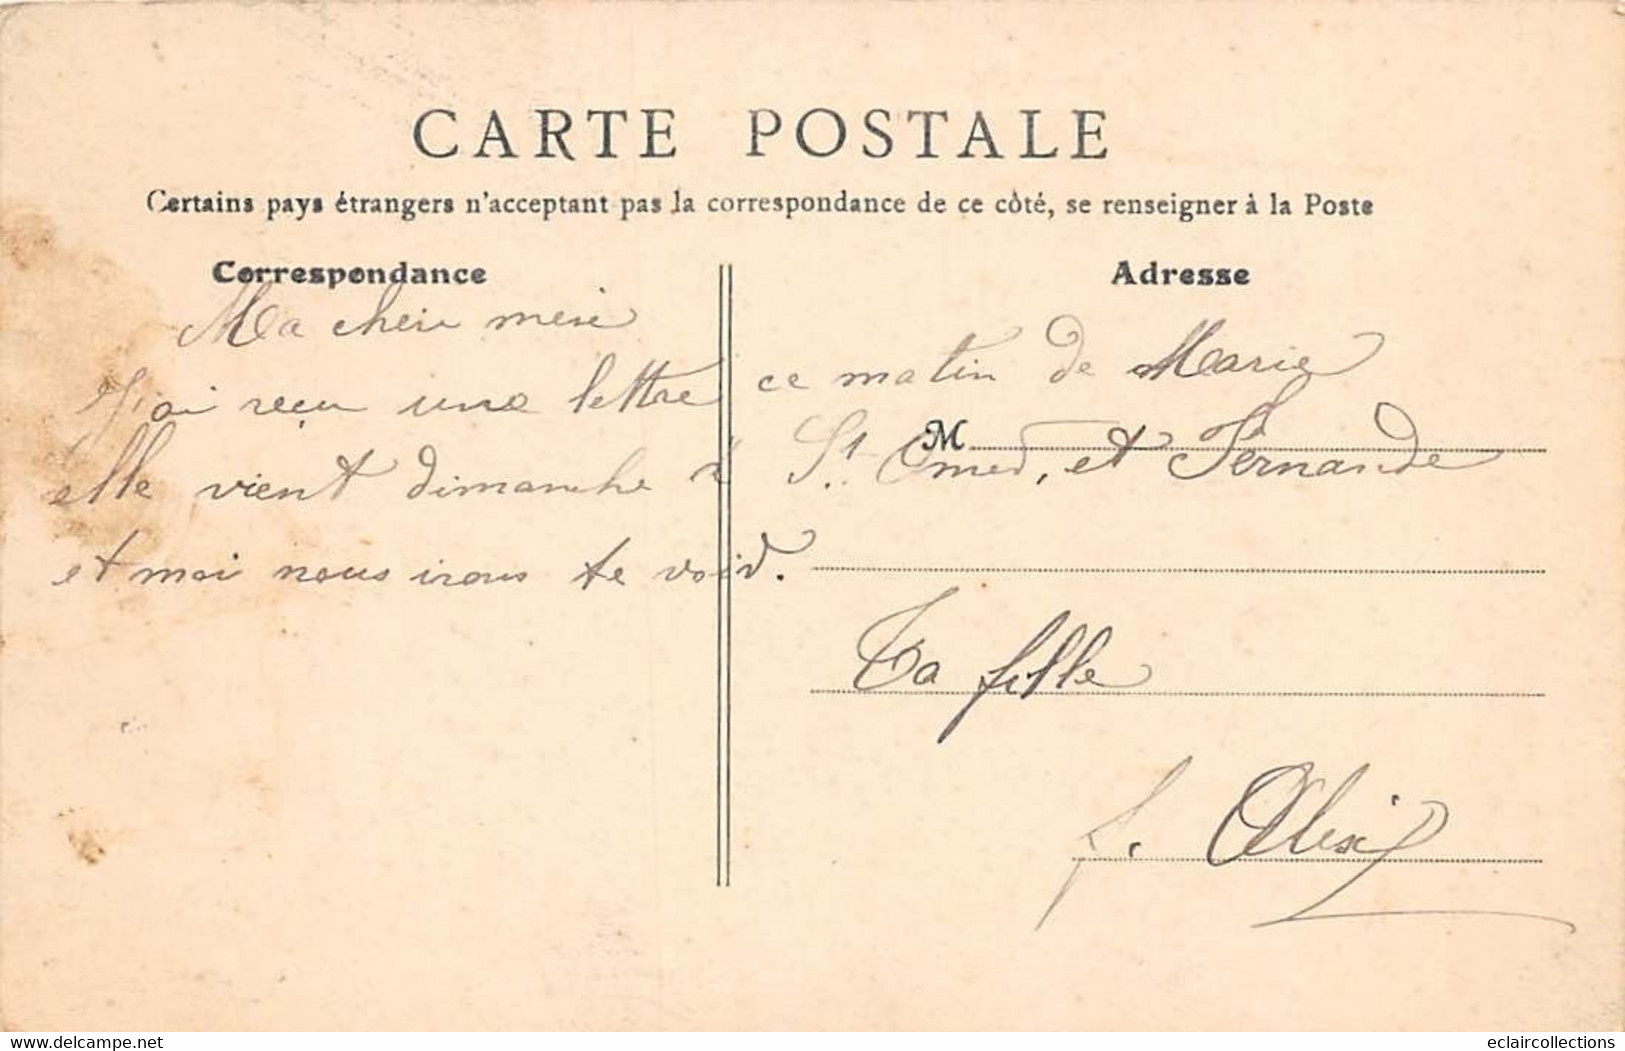 CARTE POSTALE
Certains pays étrangers n'acceptant pas la correspondance de ce côté, se renseigner à la Poste
Correspondance
Adresse
Ma cheir meie
J'ai reçu une lettre ce matin de Marie
M
elle vient dimanche à St. Omer, et Fernande
et moi nous irons te voir.
Ta fille
f. Alexis
www.delcampe.net
eclaircollections